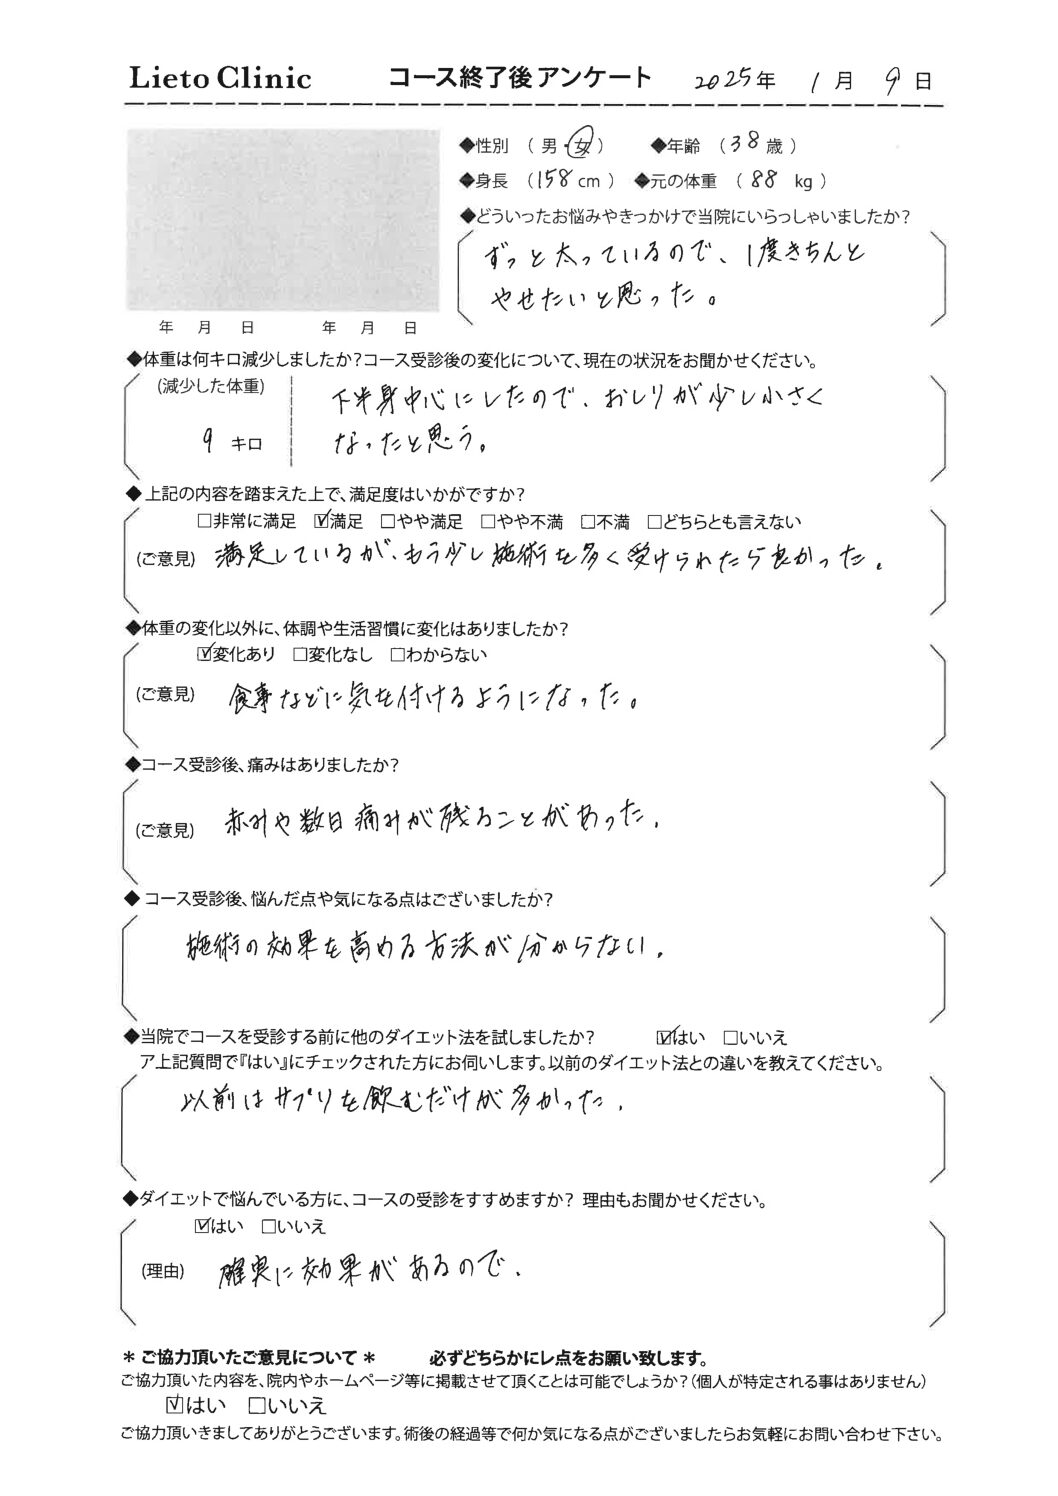 Lieto Clinic コース終了後アンケート 2025年 1月 9日
◆性別 （ 男・女 ） ◆年齢 （ 38 歳 ）
◆身長 （ 158 cm ） ◆元の体重 （ 88 kg ）
◆どういったお悩みやきっかけで当院にいらっしゃいましたか？
ずっと太っているので、1度きちんと
やせたいと思った。
年 月 日 年 月 日
◆体重は何キロ減少しましたか？コース受診後の変化について、現在の状況をお聞かせください。
(減少した体重)
9 キロ
下半身中心にしたので、おしりが少し小さく
なったと思う。
◆ 上記の内容を踏まえた上で、満足度はいかがですか？
□非常に満足 ☑満足 □やや満足 □やや不満 □不満 □どちらとも言えない
(ご意見) 満足しているが、もう少し施術を多く受けられたら良かった。
◆体重の変化以外に、体調や生活習慣に変化はありましたか？
☑変化あり □変化なし □わからない
(ご意見) 食事などに気を付けるようになった。
◆コース受診後、痛みはありましたか？
(ご意見) 赤みや数日痛みが残ることがあった。
◆ コース受診後、悩んだ点や気になる点はございましたか？
施術の効果を高める方法が分からない。
◆当院でコースを受診する前に他のダイエット法を試しましたか？ ☑はい □いいえ
ア上記質問で『はい』にチェックされた方にお伺いします。以前のダイエット法との違いを教えてください。
以前はサプリを飲むだけが多かった。
◆ダイエットで悩んでいる方に、コースの受診をすすめますか？ 理由もお聞かせください。
☑はい □いいえ
(理由) 確実に効果があるので。
＊ ご協力頂いたご意見について ＊ 必ずどちらかにレ点をお願い致します。
ご協力頂いた内容を、院内やホームページ等に掲載させて頂くことは可能でしょうか？（個人が特定される事はありません）
☑はい □いいえ
ご協力頂いきましてありがとうございます。術後の経過等で何か気になる点がございましたらお気軽にお問い合わせ下さい。